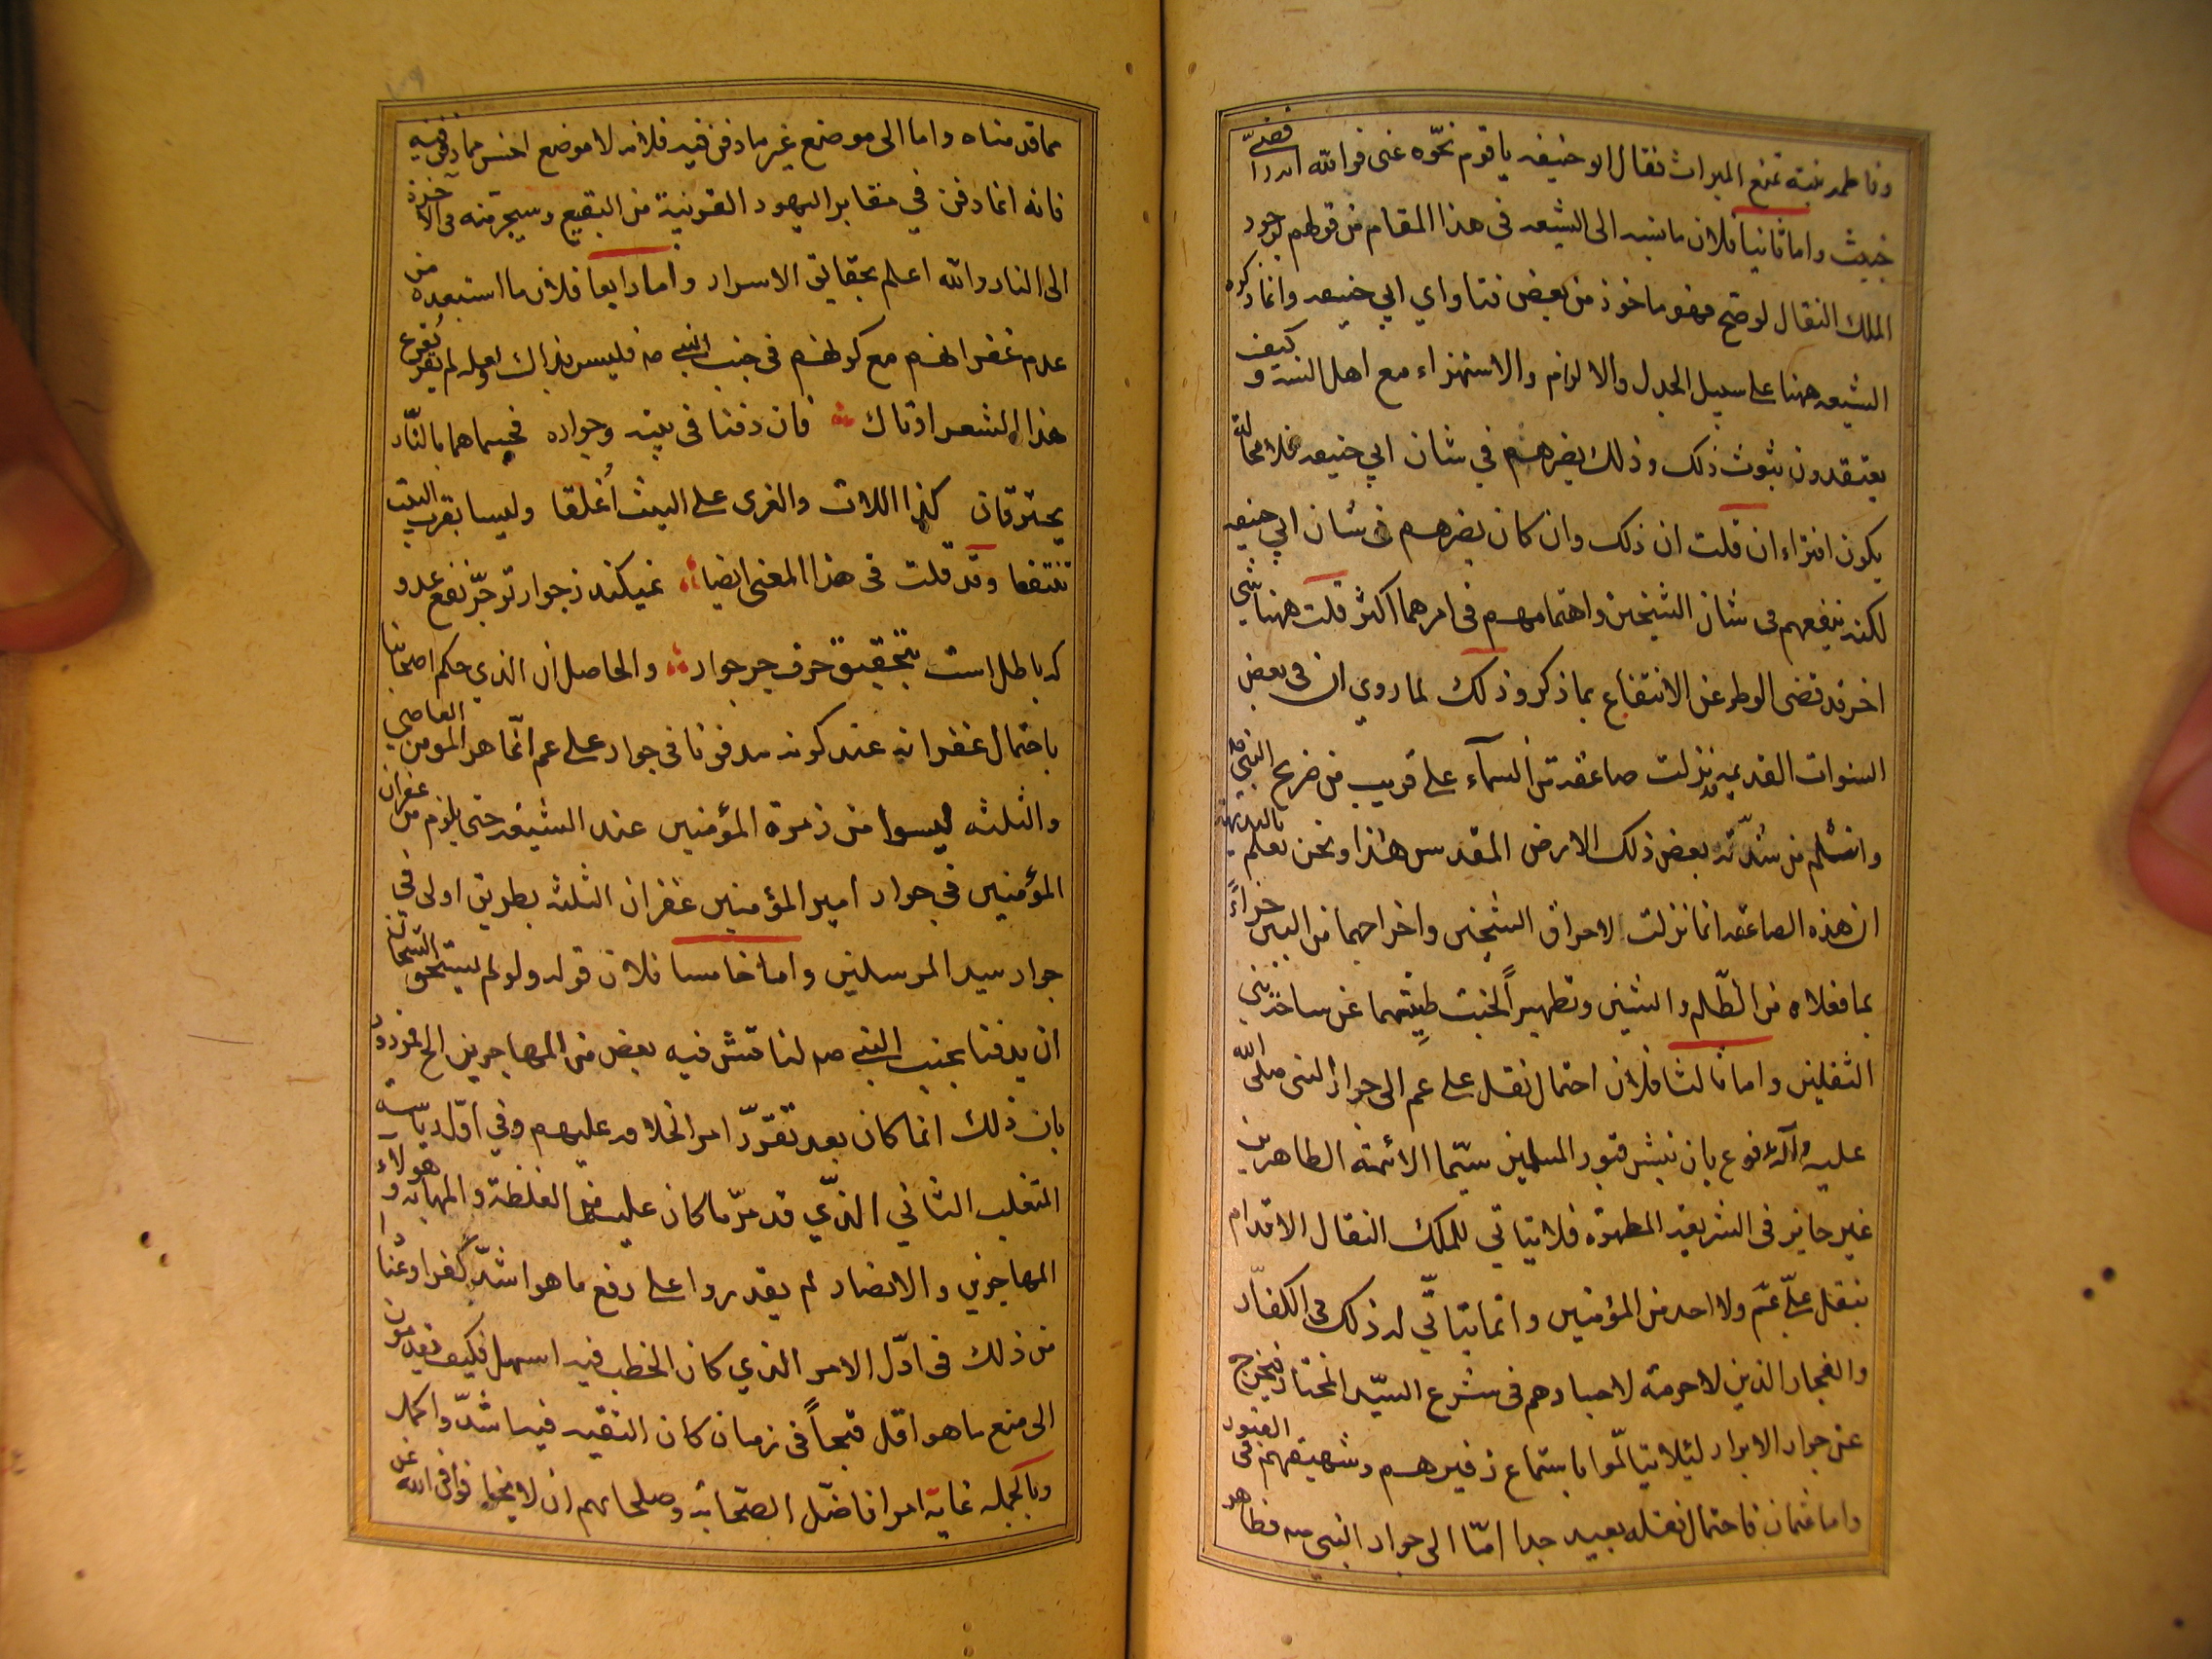 وفاطمة بنته تمنع الميراث فقال ابو حنيفه يا قوم نحّوه عنى فوالله انه رافضىّ
خبيث واما ثانيا فلان ما نسبه الى الشيعه فى هذا المقام من قولهم بوجود
الملك النقال لو صح فهو ماخوذ من بعض فتاواي ابي حنيفه وانما ذكره
الشيعه ههنا على سبيل الجدل والالزام والاستهزاء مع اهل السنه وكيف
يعتقدون ثبوت ذلك وذلك يضرهم في شان ابي حنيفه فلا محالة
يكون افتراء ان قلت ان ذلك وان كان يضرهم في شان ابي حنيفه
لكنه ينفعهم فى شان الشيخين واهتمامهم فى امرهما اكثر قلت ههنا شى
اخر قد قضى الوطر عن الانتفاع بما ذكر وذلك لما روي ان فى بعض
السنوات القديمه نزلت صاعقه من السمآء على قريب من ضريح النبى صه
وانثلم من شدّته بعض ذلك الارض المقدس هذا ونحن نعلم بالبديهة
ان هذه الصاعقه انما نزلت لاحراق الشيخين واخراجهما من البين جزاءً
بما فعلاه من الظلم والشين وتطهيراً لخبث طينتهما عن ساحة نبى
الثقلين واما ثالثا فلان احتمال نقل على عم الى جوار النبى صلى الله
عليه وآله مدفوع بان نبش قبور المسلمين سيّما الائمة الطاهرين
غير جايز فى الشريعه المطهره فلا يتاتى للملك النقال الاقدام
بنقل علىّ عم ولا احد من المؤمنين وانما يتاتّى له ذلك فى الكفّار
والفجار الذين لا حرمة لاجسادهم فى شرع السيّد المختار فيخرج
عن جوار الابرار لئلا يتالّموا باستماع زفيرهم وشهيقهم فى القبور
واما عثمان فاحتمال نقله بعيد جدا امّا الى جوار النبى صه فظاهر
مما قدمناه واما الى موضع غير ما دفن فيه فلانه لا موضع اخس مما دفن فيه
فانه انما دفن في مقابر اليهود القريبة من البقيع وسيجر منه فى الآخرة
الى النار والله اعلم بحقايق الاسرار واما رابعا فلان ما استبعده من
عدم غفرانهم مع كونهم فى جنب النبى صه فليس بذاك ولعله لم يقرع
هذا الشعر اذناك فان دفنا فى بيته وجواره فجسماهما بالنّار
يحترقان كذا اللات والعزى على البيت أغلقا وليسا بقرب البيت
تنتفعا وقد قلت فى هذا المعنى ايضا نميكند ز جوار تو جرّ نفع عدو
كه باطل است بتحقيق حرف جر جوار والحاصل ان الذي حكم اصحابنا
باحتمال غفرانه عند كونه مدفونا فى جوار على عم انّما هو المومن العاصي
والثلثه ليسوا من زمرة المؤمنين عند الشيعه حتى يلزم من غفران
المؤمنين في جوار امير المؤمنين غفران الثلثه بطريق اولى فى
جوار سيد المرسلين واما خامسا فلان قوله ولو لم يستحق الشيخان
ان يدفنا بجنب النبى صه لناقش فيه بعض من المهاجرين الخ فمردود
بان ذلك انما كان بعد تقرّر امر الخلافه عليهم وفي اوّل رياسة
المتغلب الثاني الذّي قد مرّ ما كان عليه من الغلظة والمهابه وهولاء
المهاجرين والانصار لم يقدروا على دفع ما هو اشدّ كفرا وعنادا
من ذلك فى اوّل الامر الذي كان الخطب فيه اسهل فكيف يقدمون
الى منع ما هو اقل قبحاً فى زمان كان التقيه فيه اشدّ واكمل
وبالجمله غاية امر افاضل الصحّابة وصلحائهم ان لا يخافوا فى الله عن